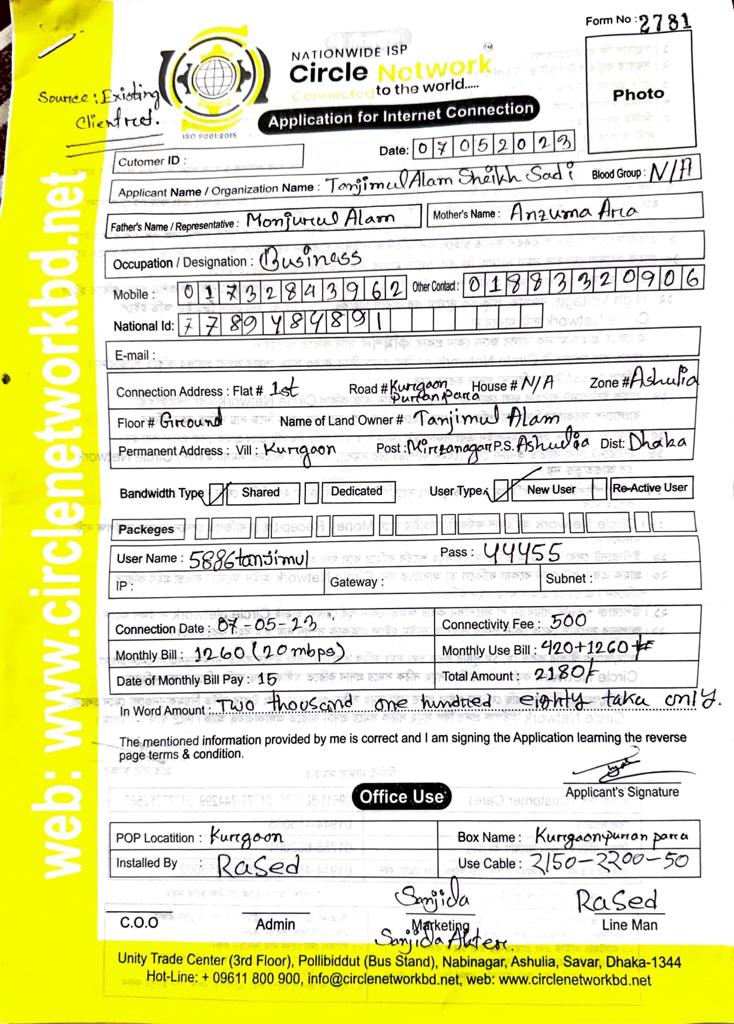 Form No : 2781
NATIONWIDE ISP
Circle Network
Connected to the world.....
ISO 9001:2015
Source : Existing
Client red.
Application for Internet Connection
Photo
Date: 07052023
Cutomer ID :
Applicant Name / Organization Name : Tanjimul Alam Sheikh Sadi Blood Group : N/A
Father's Name / Representative : Monjurul Alam Mother's Name : Anzuma Ara
Occupation / Designation : Business
Mobile : 01732843962 Other Contact : 01883320906
National Id: 7789484891
E-mail :
Connection Address : Flat # 1st Road # Kurgaon puranpara House # N/A Zone # Ashulia
Floor # Ground Name of Land Owner # Tanjimul Alam
Permanent Address : Vill : Kurgaon Post : Mirzanagar P.S. Ashulia Dist: Dhaka
Bandwidth Type Shared Dedicated User Type New User Re-Active User
Packeges
User Name : 5886tanjimul Pass : 44455
IP : Gateway : Subnet :
Connection Date : 07-05-23 Connectivity Fee : 500
Monthly Bill : 1260 (20 mbps) Monthly Use Bill : 420+1260
Date of Monthly Bill Pay : 15 Total Amount : 2180/-
In Word Amount : Two thousand one hundred eighty taka only.
The mentioned information provided by me is correct and I am signing the Application learning the reverse
page terms & condition.
Applicant's Signature
Office Use
POP Locatition : Kurgaon Box Name : Kurgaonpuran para
Installed By : RaSed Use Cable : 2150-2200-50
Sanjida RaSed
C.O.O Admin Marketing Line Man
Sanjida Akter.
Unity Trade Center (3rd Floor), Pollibiddut (Bus Stand), Nabinagar, Ashulia, Savar, Dhaka-1344
Hot-Line: + 09611 800 900, info@circlenetworkbd.net, web: www.circlenetworkbd.net
web: www.circlenetworkbd.net